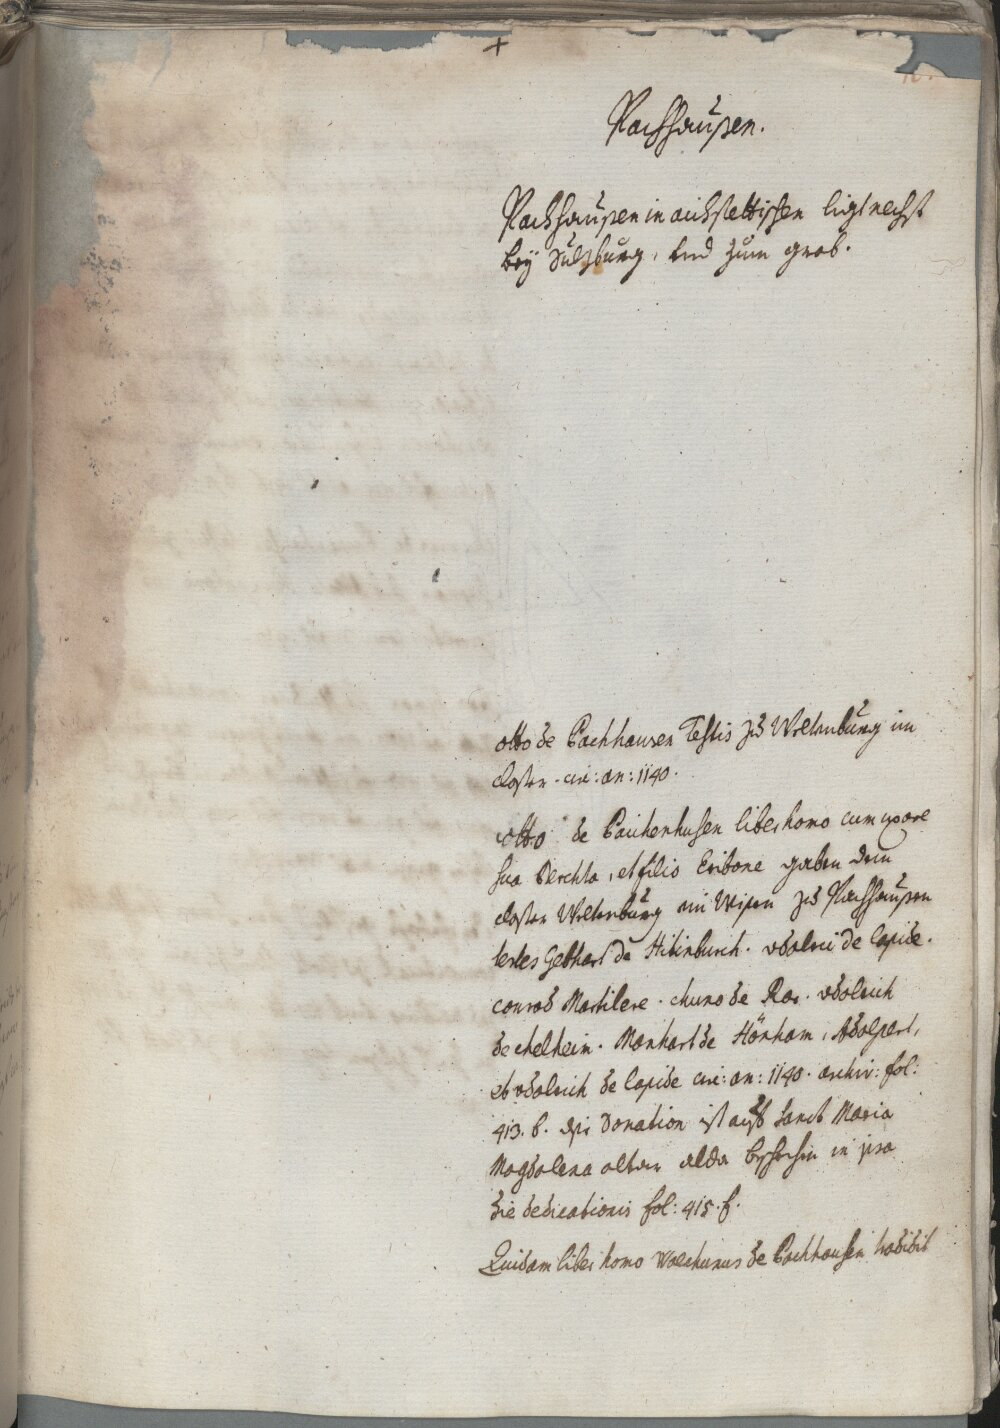 +
Pachhausen.
Pachhausen in aichstettischen ligt nechst
bey Sulzburg, und zum grab.
otto de Pachhausen Testis zu Weltenburg im
closter. circ: an: 1140.
otto de Pauhenhusen liber homo cum uxore
sua Perchta, et filio Eribone gaben dem
closter Weltenburg ein Wisen zu Pachhausen
testes Gebhart de Hitinburch. udalrici de lapide.
conrad Martilere. chuno de Ror. udalrich
de chelheim. Manhart de Hönham, Adalpert,
et udalrich de lapide circ: an: 1140. archiv: fol:
413. b. die Donation ist auf sanct Maria
Magdalena altar alda beschehen in ipsa
die dedicationis fol: 415. f.
Quidam liber homo Walchunus de Pachhausen tradidit